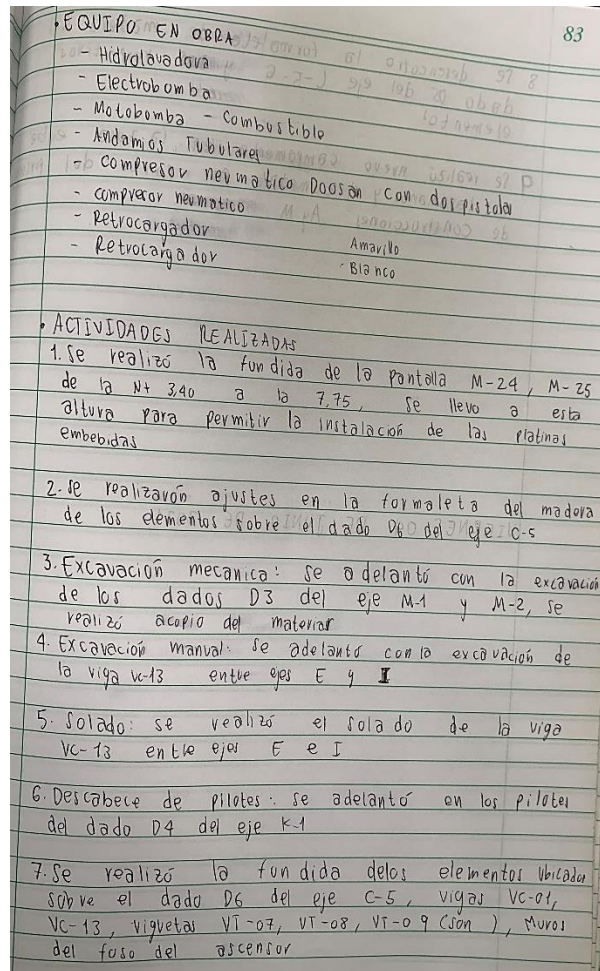 83
• EQUIPO EN OBRA
- Hidrolavadora
- Electrobomba
- Motobomba - Combustible
- Andamios Tubulares
- compresor neumatico Doosan con dos pistolas
- compresor neumatico
- Retrocargador Amarillo
- Retrocargador - Blanco
• ACTIVIDADES REALIZADAS
1. Se realizó la fundida de la pantalla M-24, M-25
de la N+ 3,40 a la 7,75, se llevo a esta
altura para permitir la instalación de las platinas
embebidas
2. se realizarón ajustes en la formaleta del madera
de los elementos sobre el dado D6 del eje C-5
3. Excavación mecanica: se adelantó con la excavación
de los dados D3 del eje M-1 y M-2, se
realizó acopio del material
4. Excavación manual: se adelantó con la excavación de
la viga vc-13 entre ejes E y I
5. Solado: se realizó el solado de la viga
VC-13 entre ejes E e I
6. Descabece de pilotes: se adelantó en los pilotes
del dado D4 del eje K-1
7. Se realizó la fundida delos elementos ubicados
sobre el dado D6 del eje C-5, vigas VC-01,
VC-13, viguetas VT-07, VT-08, VT-09 (son ), Muros
del foso del ascensor